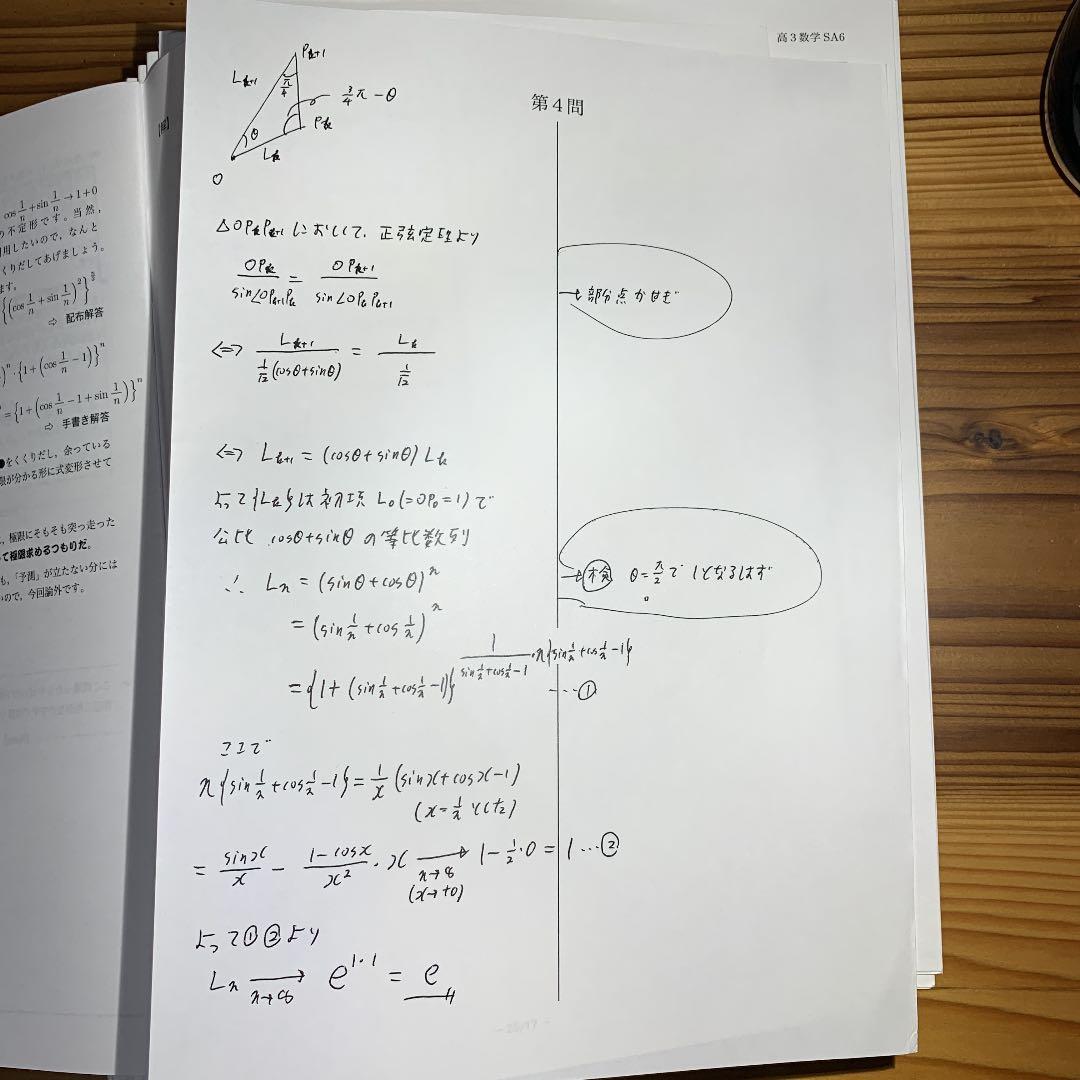 高3数学 SA6
第4問
P_{k+1}
L_{k+1}
π/4
3/4π − θ
P_k
θ
L_k
O
△OP_kP_{k+1}において、正弦定理より
OP_k/sin∠OP_{k+1}P_k = OP_{k+1}/sin∠OP_kP_{k+1}
→部分点かせぎ
⇔ L_{k+1}/(1/√2(cosθ+sinθ)) = L_k/(1/√2)
⇔ L_{k+1} = (cosθ+sinθ) L_k
よって{L_k}は初項 L_0(=OP_0=1)で
公比 cosθ+sinθ の等比数列
→検 θ=π/2で1となるはず
∴ L_n = (sinθ+cosθ)^n
= (sin1/n + cos1/n)^n
= {1+(sin1/n+cos1/n−1)}^{1/(sin1/n+cos1/n−1)・n{sin1/n+cos1/n−1}} ……①
ここで
n{sin1/n+cos1/n−1} = 1/x (sinx+cosx−1)
(x=1/nとした)
= sinx/x − (1−cosx)/x²・x →[n→∞ (x→+0)] 1−1/2・0 = 1 …②
よって①②より
L_n →[n→∞] e^{1・1} = e
[解]
cos1/n + sin1/n → 1+0
の不定形です。当然,
用したいので, なんと
くりだしてあげましょう。
ます。
{(cos1/n + sin1/n)²}^{n/2}
⇨ 配布解答
)^n・{1+(cos1/n −1)}^n
= {1+(cos1/n −1+sin1/n)}^n
⇨ 手書き解答
●をくくりだし, 余っている
限が分かる形に式変形させて
, 極限にそもそも突っ走った
て極限求めるつもりだ。
も, 「予測」が立たない分には
いので, 今回論外です。